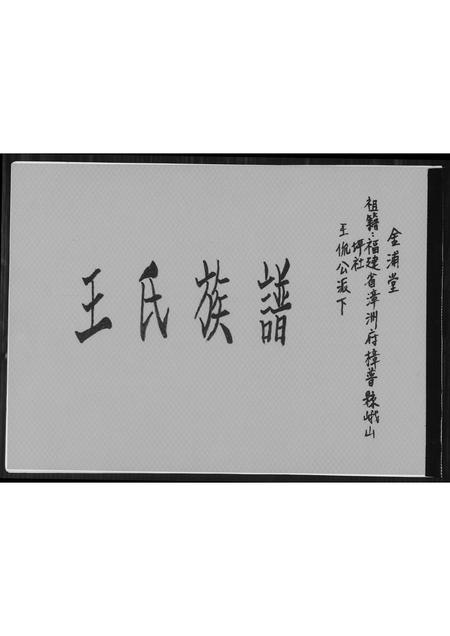 金浦堂
祖籍：福建省漳洲府樟普縣峨山
坪社
王侃公派下
王氏族譜